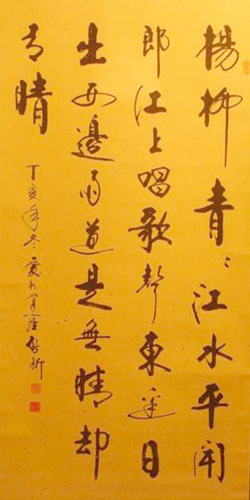 楊柳青〻江水平聞
郎江上唱歌聲東邊日
出西邊雨道是無晴却
有晴
丁亥年冬